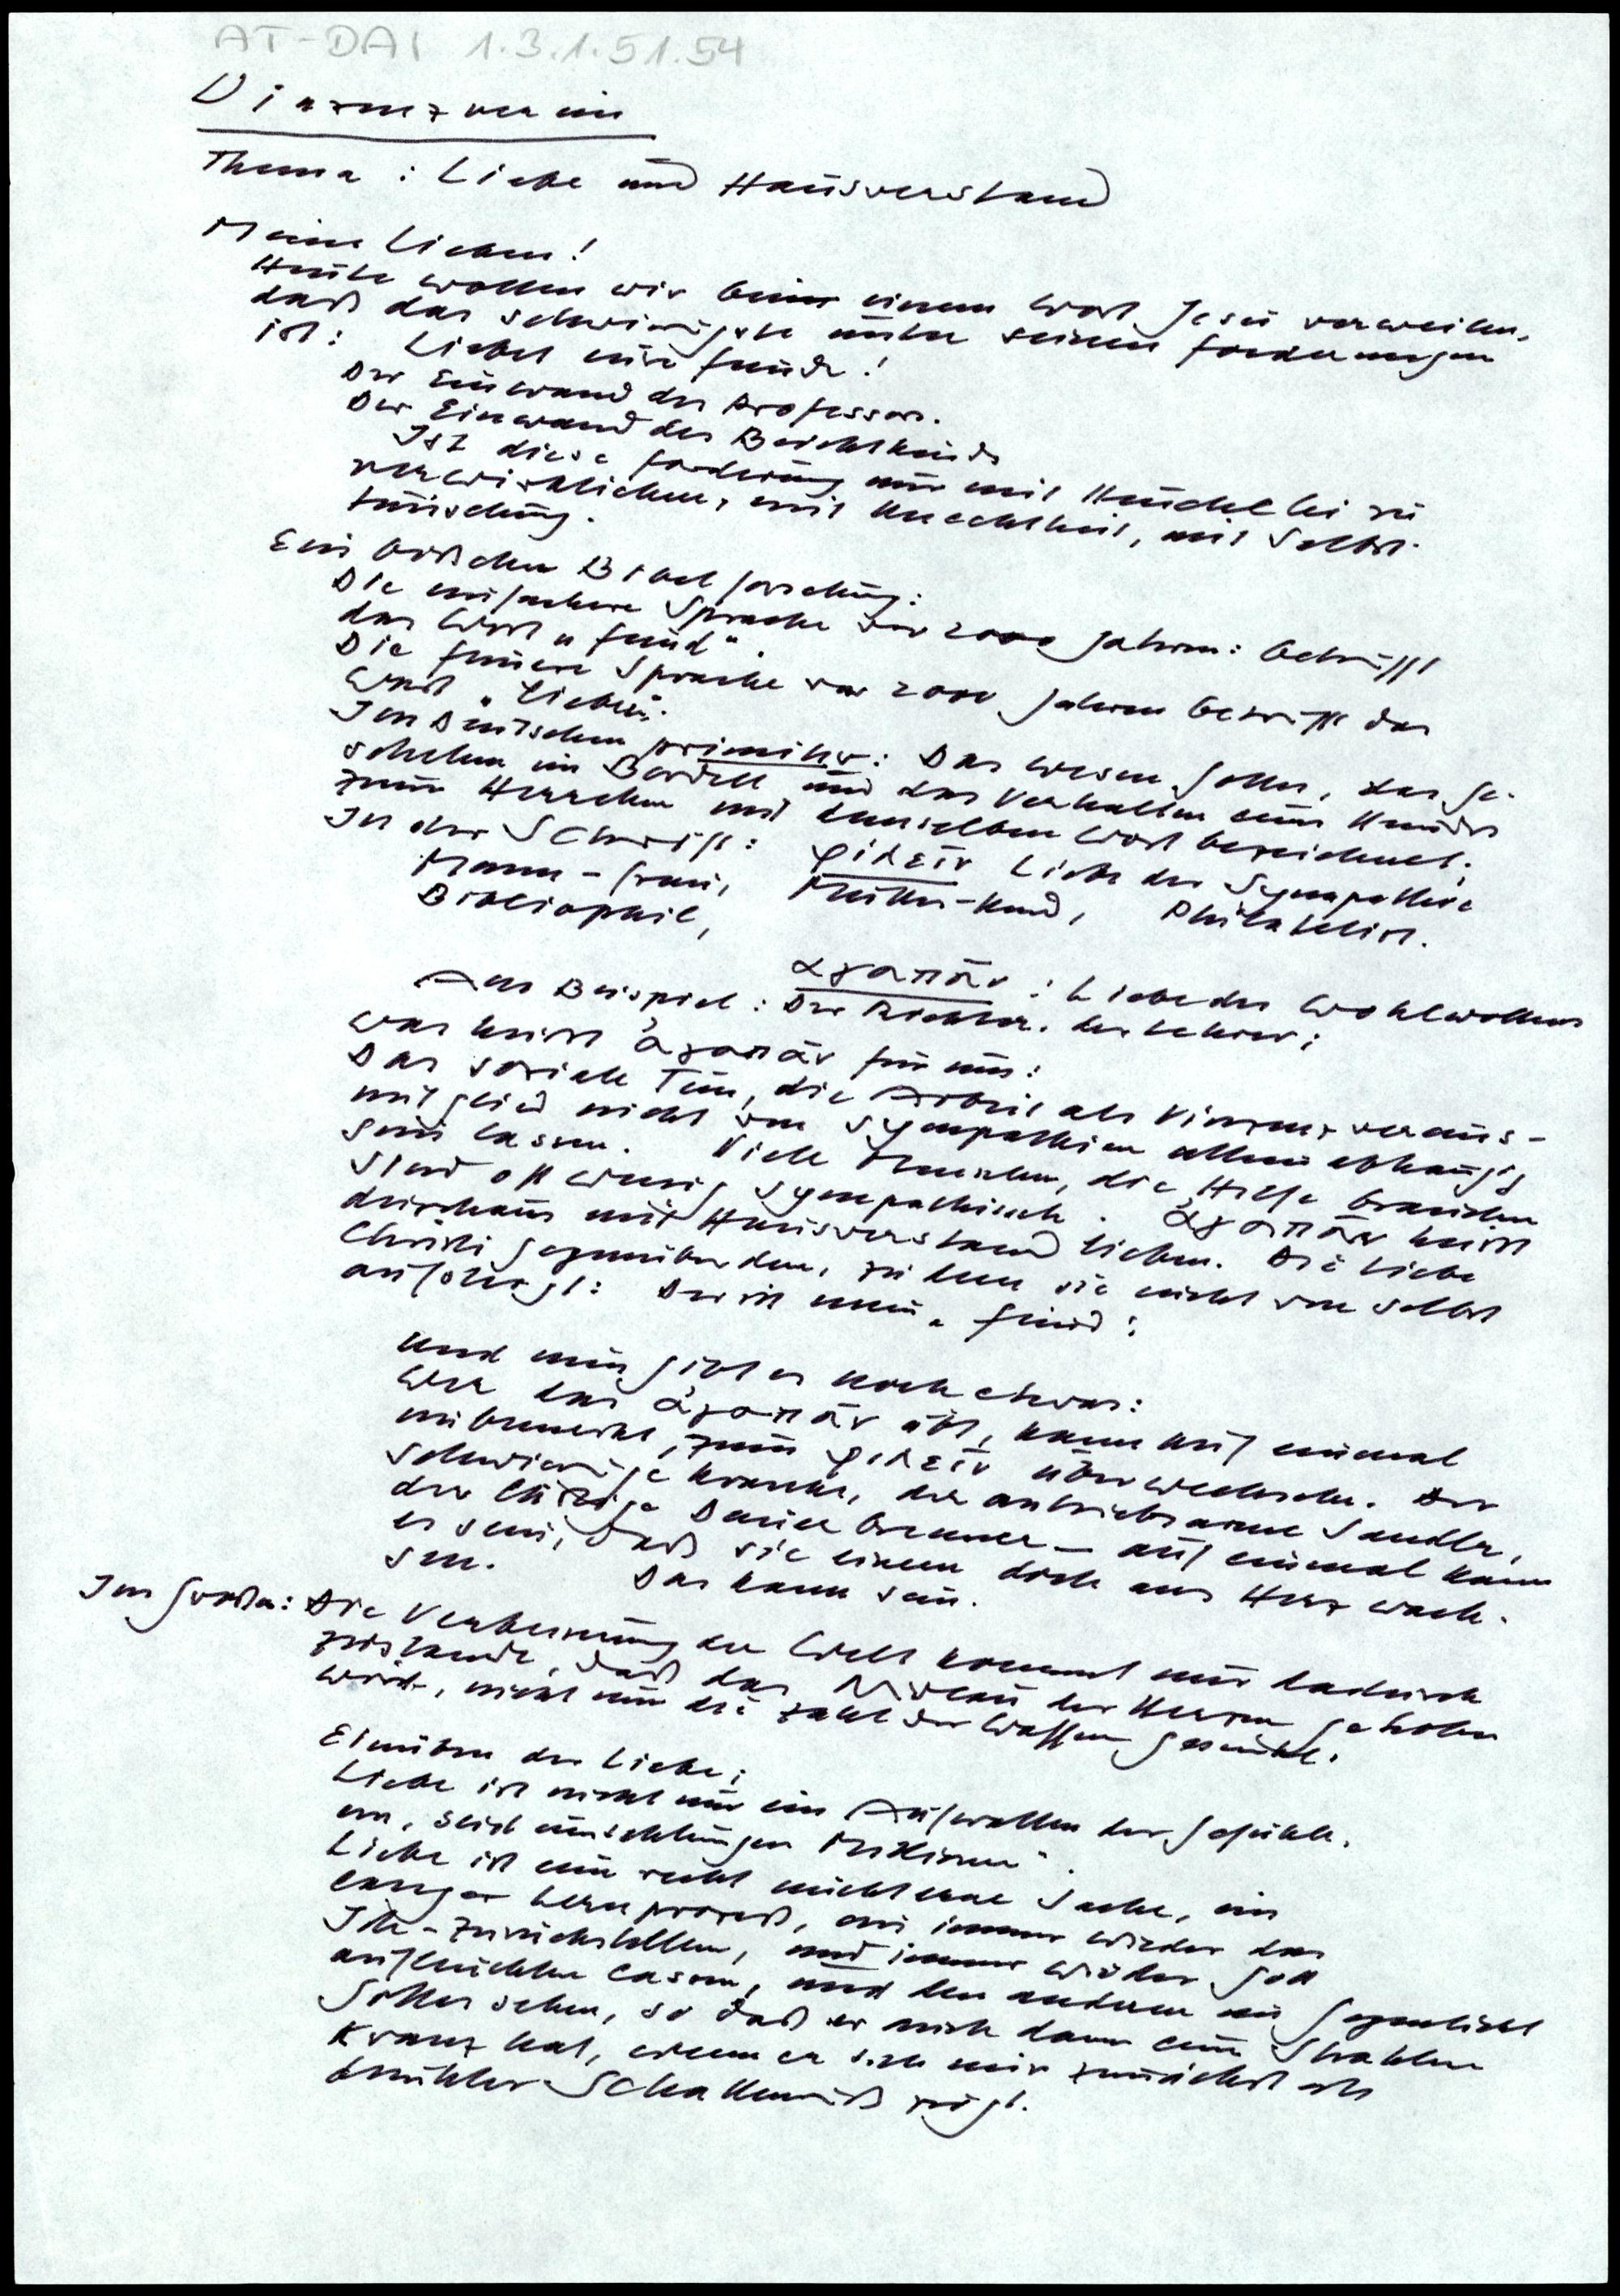 AT-DAI 1.3.1.51.54
Vinzenzverein
Thema: Liebe und Hausverstand
Meine Lieben!
Heute wollen wir beim einem Wort Jesu verweilen,
daß das schwierigste unter seinen Forderungen
ist: Liebet eure Feinde!
Der Einwand des Professors.
Der Einwand des Beichtkinds
Ist diese Forderung nur mit Heuchelei zu
verwirklichen, mit Knechtheit, mit Selbst-
täuschung.
Ein bisschen Bibelforschung:
Die einfachere Sprache vor 2000 Jahren: betrifft
das Wort "Feind".
Die feinere Sprache vor 2000 Jahren betrifft das
Wort "Lieben".
Im Deutschen primitiv: Das Wesen Gottes, das Ge-
schehen im Bordell und das Verhalten eines Hundes
zum Herrchen mit demselben Wort bezeichnet;
In der Schrift: φιλεῖν Liebe der Sympathie
Mann-Frau, Mutter-Kind, Philatelist.
Bibliophil,
αγαπᾶν: Liebe des Wohlwollens
Aus Beispiel: Der Richter. der Lehrer;
Was heisst ἀγαπᾶν für uns:
Das soziale Tun, die Arbeit als Vinzenzvereins-
mitglied nicht von Sympathien allein abhängig
sein lassen. Viele Menschen, die Hilfe brauchen
sind oft wenig sympathisch. ἀγαπᾶν heisst
durchaus mit Hausverstand lieben. Die Liebe
Christi gegenüber dem, zu dem sie nicht von selbst
aufsteigt: Der ist mein "Feind";
Und nun gibt es noch etwas:
Wer das ἀγαπᾶν übt, kann auf einmal
unbemerkt, zum φιλεῖν überwechseln. Der
schwierige Kranke, der antriebsarme Sandler,
der lästige Dauerbrenner – auf einmal kann
es sein, daß sie einem doch ans Herz wach-
sen. Das kann sein.
Im Großen: Die Verbesserung der Welt kommt nur dadurch
zustande, daß das Niveau der Herzen gehoben
wird, nicht nur die Zahl der Waffen gesenkt.
Einüben der Liebe;
Liebe ist nicht nur ein Aufwallen der Gefühle.
en, Seid umschlungen Millionen".
Liebe ist eine recht nüchterne Sache, ein
langer Lernprozeß, ein immer wieder das
Ich-Zurückstellen, und immer wieder Gott
aufleuchten lassen, und den anderen im Gegenlicht
Gottes sehen, so daß er auch dann einen Strahlen
Kranz hat, wenn er sich mir zunächst als
dunkler Schattenriß zeigt.